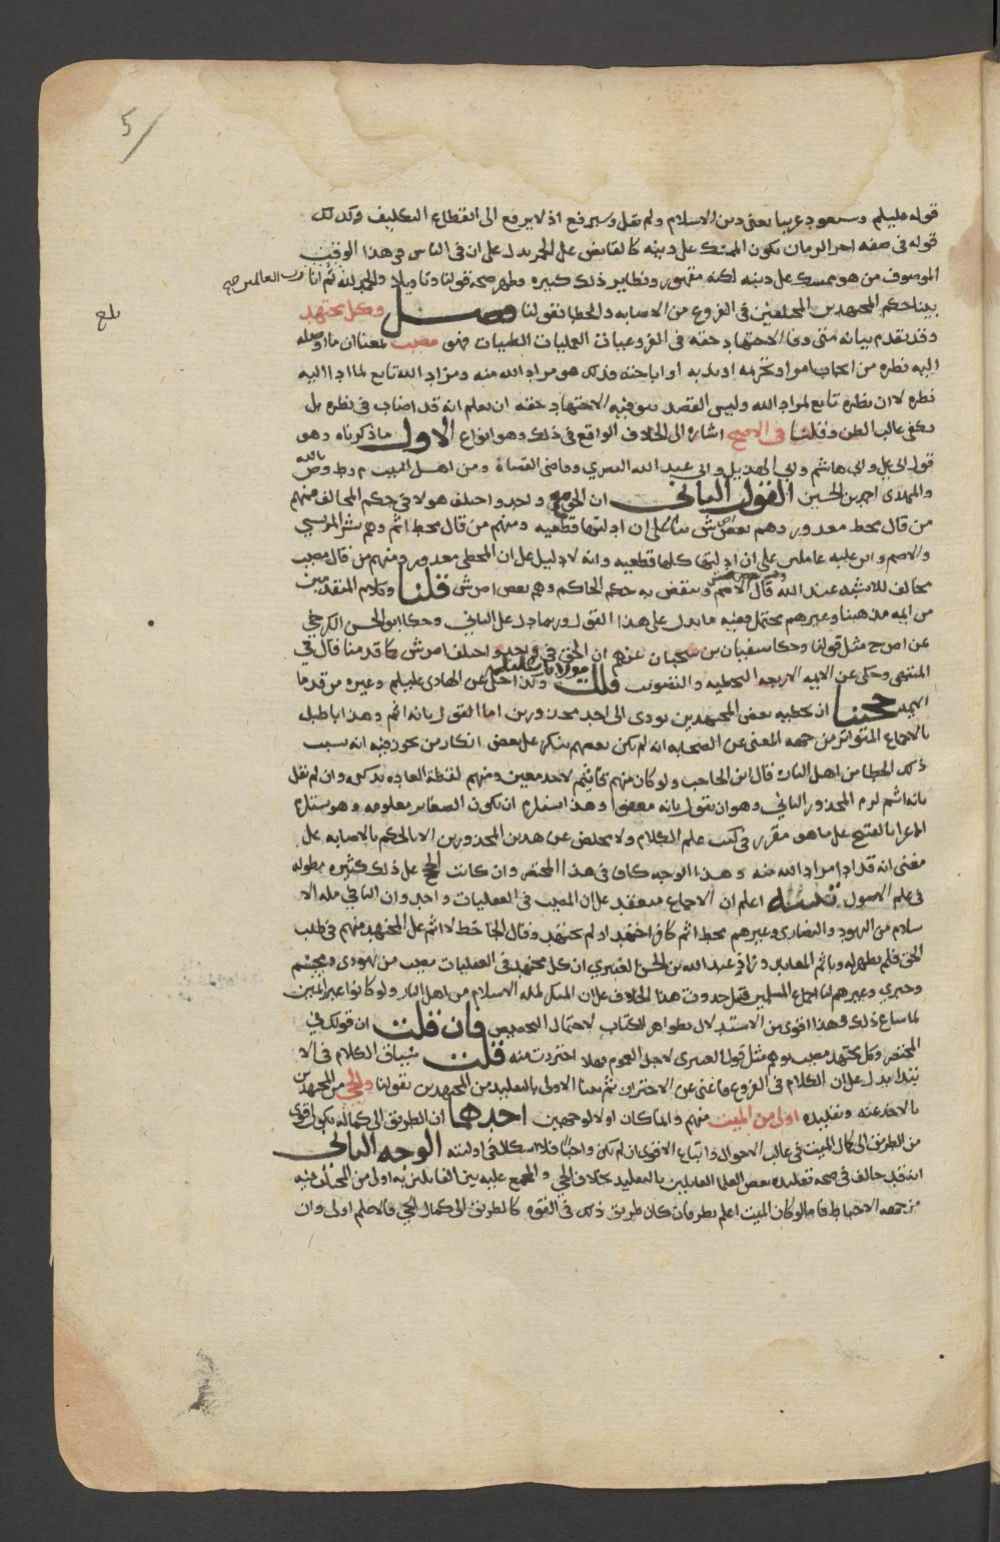 5
قوله عليلم وسيعود غريبا يعنى دين الاسلام ولم يقل وسيرفع اذ لا يرفع الى انقطاع التكليف وكذلك
قوله فى صفه اخر الزمان يكون المتمسك على دينه كالقابض على الجمر يدل على ان فى الناس فى هذا الوقت
الموصوف من هو متمسك على دينه لكنه مقهور ونظاير ذلك كثيره وظهر صحه قولنا وتاويلا والحمد لله رب العالمين ثم انا
بلغ
بينا حكم المجتهدين المختلفين فى الفروع من الاصابه والخطا بقولنا فصل وكل مجتهد
وقد تقدم بيانه متى وفا الاجتهاد حقه فى الفرعيات العمليات الظنيات فهو مصيب بمعنا ان ما اوصله
اليه نظره من ايجاب امر او تحريمه او ندبه او اباحته فذلك هو مراد الله منه ومراد الله تابع لما ادا اليه
نظره لا ان نظره تابع لمراد الله وليس القصد بتوفيه الاجتهاد حقه ان يعلم انه قد اصاب فى نظره بل
يكفى غالب الظن وقلنا فى الاصح اشاره الى الخلاف الواقع فى ذلك وهو انواع الاول ما ذكرناه وهو
قول ابى على وابى هاشم وابى الهذيل وابى عبد الله البصري وقاضى القضاه ومن اهل البيت م بالله وط وص
والمهدى احمد بن الحسين القول الثانى ان الحق مع واحد واختلف هولا فى حكم المخالف منهم
من قال مخط معذور وهم بعض اص ش بنا على ان ادلتها قطعيه ومنهم من قال مخط اثم وهم بشر المريسي
والاصم وابن عليه عاملين على ان ادلتها كلها قطعيه وانه لا دليل على ان المخطى معذور ومنهم من قال مصيب
مخالف للاشبه عند الله قال الاصم وينقض به حكم الحاكم وهم بعض اص ش قلنا وكلام المتقدمين
من ايمه مذهبنا وغيرهم محتمل ففيه ما يدل على هذا القول وربما دل على الثاني وحكا ابو الحسن الكرخي
عن اص ح مثل قولنا وحكا سفيان بن سحبان عنهم ان الحق فى واحد واختلف اص ش كما قدمنا قال فى
المنتهى وحكى عن الايمه الاربعه التخطيه والتصويب قلت وكذا حكى عن الهادى عليلم وغيره من قدما
الايمه حجتنا ان تخطيه بعض المجتهدين يودى الى احد محذورين اما القول بانه اثم وهذا باطل
بالاجماع المتواتر من جهه المعنى عن الصحابه انه لم يكن بعضهم ينكر على بعض انكار من يجوز فيه انه بسبب
ذلك الخطا من اهل النار قال ابن الحاجب ولو كان منهم تاثيم لاحد معين ومنهم لقضت العاده بذكره وان لم نقل
بانه اثم لزم المحذور الثاني وهو ان نقول بانه معفو وهذا يستلزم ان يكون الصغاير معلومه وهو يستلزم
الاغرا بالقبيح على ما هو مقرر فى كتب علم الكلام ولا مخلص عن هذين المحذورين الا بالحكم بالاصابه على
معنى انه قد ادا مراد الله منه وهذا الوجه كاف فى هذا المختصر وان كانت الحجج على ذلك كثيره مطوله
فى علم الاصول تنبيه اعلم ان الاجماع منعقد على ان المصيب فى العقليات واحد وان النافى مله الا
سلام من اليهود والنصارى وغيرهم مخط اثم كافر اجتهد او لم يجتهد وقال الجاحظ لا اثم على المجتهد منهم فى طلب
الحق فلم يظهر له وياثم المعاند وزاد عبد الله بن الحسن العنبري ان كل مجتهد فى العقليات مصيب من يهودى ومجسم
وجبري وغيرهم لنا اجماع المسلمين قبل حدوث هذا الخلاف على ان المنكر لمله الاسلام من اهل النار ولو كانوا غير اثمين
لما ساغ ذلك وهذا اقوى من الاستدلال بظواهر الكتاب لاحتمال التخصيص فان قلت ان قولك فى
المختصر وكل مجتهد مصيب يوهم مثل قول العنبرى لاجل العموم فهلا احترزت منه قلت سياق الكلام فى الا
بتدا يدل على ان الكلام فى الفروع فاغنى عن الاحتراز ثم بينا الاولى بالتقليد من المجتهدين بقولنا والحي من المجتهدين
بالاخذ عنه وتقليده اولى من الميت منهم وانما كان اولا لوجهين احدهما ان الطريق الى كماله يكون اقوى
من الطريق الى كمال الميت فى غالب الاحوال واتباع الاقوى ان لم يكن واجبا فلا اشكال فى اولته الوجه الثانى
انه قد خالف فى صحه تقليده بعض العلما القايلين بالتقليد بخلاف الحي والمجمع عليه بين القايلين به اولى من المختلف فيه
من جهه الاحتياط فاما لو كان الميت اعلم نظر فان كان طريق ذلك فى القوه كالطريق الى كمال الحي فالاعلم اولى وان